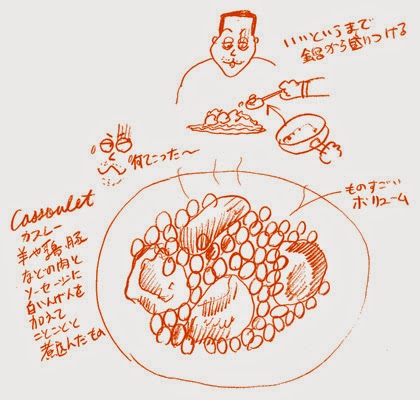 いいというまで
鍋から盛りつける
何てこった〜
ものすごい
ボリューム
Cassoulet
カスレー
羊や鶏、豚
などの肉と
ソーセージに
白いんげんを
加えて
ことことと
煮込んだもの